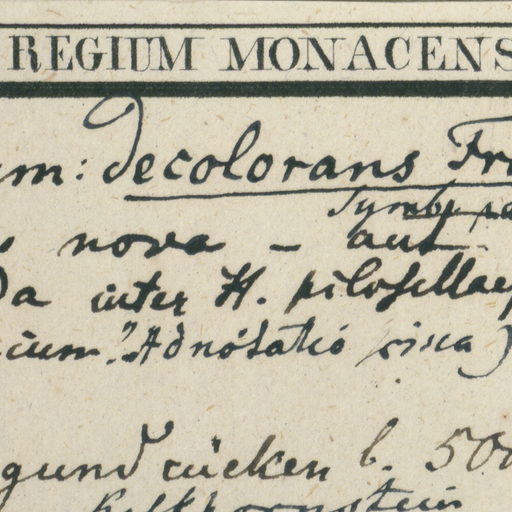 REGIUM MONACENS
um: decolorans Fri
Symb. pa
nova - aut
Da inter H. pilosellae
cium? Adnotatio circa
grundrücken b. 500